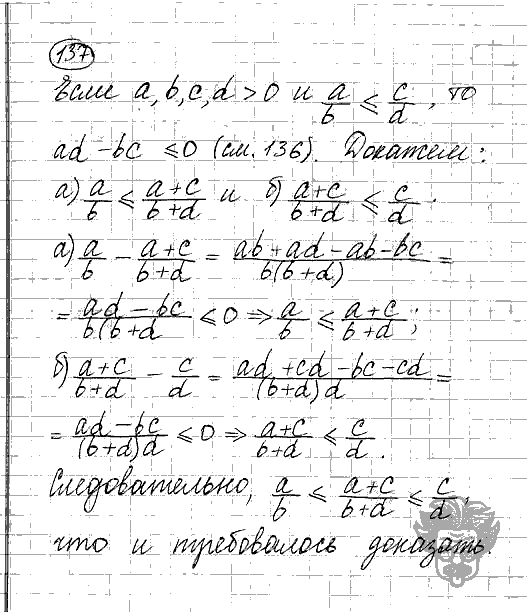 137
Если a, b, c, d > 0 и a/b ≤ c/d, то
ad - bc ≤ 0 (см. 136). Докажем:
а) a/b ≤ (a+c)/(b+d) и б) (a+c)/(b+d) ≤ c/d.
а) a/b - (a+c)/(b+d) = (ab+ad-ab-bc)/(b(b+d)) =
= (ad-bc)/(b(b+d) ≤ 0 ⇒ a/b ≤ (a+c)/(b+d);
б) (a+c)/(b+d) - c/d = (ad+cd-bc-cd)/((b+d)d) =
= (ad-bc)/((b+d)d) ≤ 0 ⇒ (a+c)/(b+d) ≤ c/d.
Следовательно, a/b ≤ (a+c)/(b+d) ≤ c/d,
что и требовалось доказать.